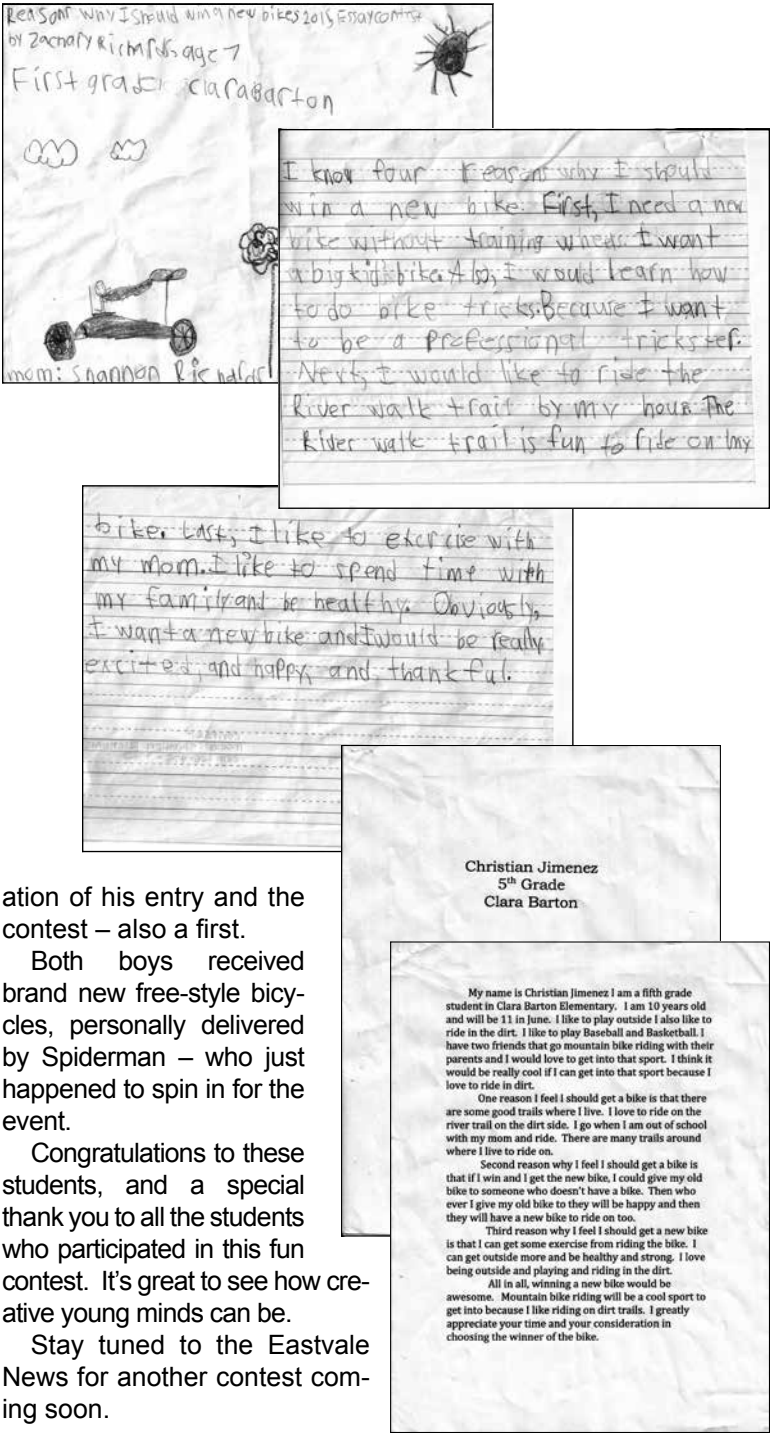 Reasons why I Should win a new bikes 2015 Essay contest
by Zachary Richards, age 7
First grade Clara Barton
mom: Shannon Richards
I know four reasons why I should
win a new bike. First, I need a new
bike without training wheels. I want
a big kids bike. Also, I would learn how
to do bike tricks. Because I want
to be a professional trickster.
Next, I would like to ride the
River walk trail by my house. The
River walk trail is fun to ride on my
bike. Last, I like to exercise with
my mom. I like to spend time with
my family and be healthy. Obviously,
I want a new bike and I would be really
excited, and happy, and thankful.
Christian Jimenez
5th Grade
Clara Barton
My name is Christian Jimenez I am a fifth grade
student in Clara Barton Elementary. I am 10 years old
and will be 11 in June. I like to play outside I also like to
ride in the dirt. I like to play Baseball and Basketball. I
have two friends that go mountain bike riding with their
parents and I would love to get into that sport. I think it
would be really cool if I can get into that sport because I
love to ride in dirt.
One reason I feel I should get a bike is that there
are some good trails where I live. I love to ride on the
river trail on the dirt side. I go when I am out of school
with my mom and ride. There are many trails around
where I live to ride on.
Second reason why I feel I should get a bike is
that if I win and I get the new bike, I could give my old
bike to someone who doesn't have a bike. Then who
ever I give my old bike to they will be happy and then
they will have a new bike to ride on too.
Third reason why I feel I should get a new bike
is that I can get some exercise from riding the bike. I
can get outside more and be healthy and strong. I love
being outside and playing and riding in the dirt.
All in all, winning a new bike would be
awesome. Mountain bike riding will be a cool sport to
get into because I like riding on dirt trails. I greatly
appreciate your time and your consideration in
choosing the winner of the bike.
ation of his entry and the
contest – also a first.
Both boys received
brand new free-style bicy-
cles, personally delivered
by Spiderman – who just
happened to spin in for the
event.
Congratulations to these
students, and a special
thank you to all the students
who participated in this fun
contest. It's great to see how cre-
ative young minds can be.
Stay tuned to the Eastvale
News for another contest com-
ing soon.